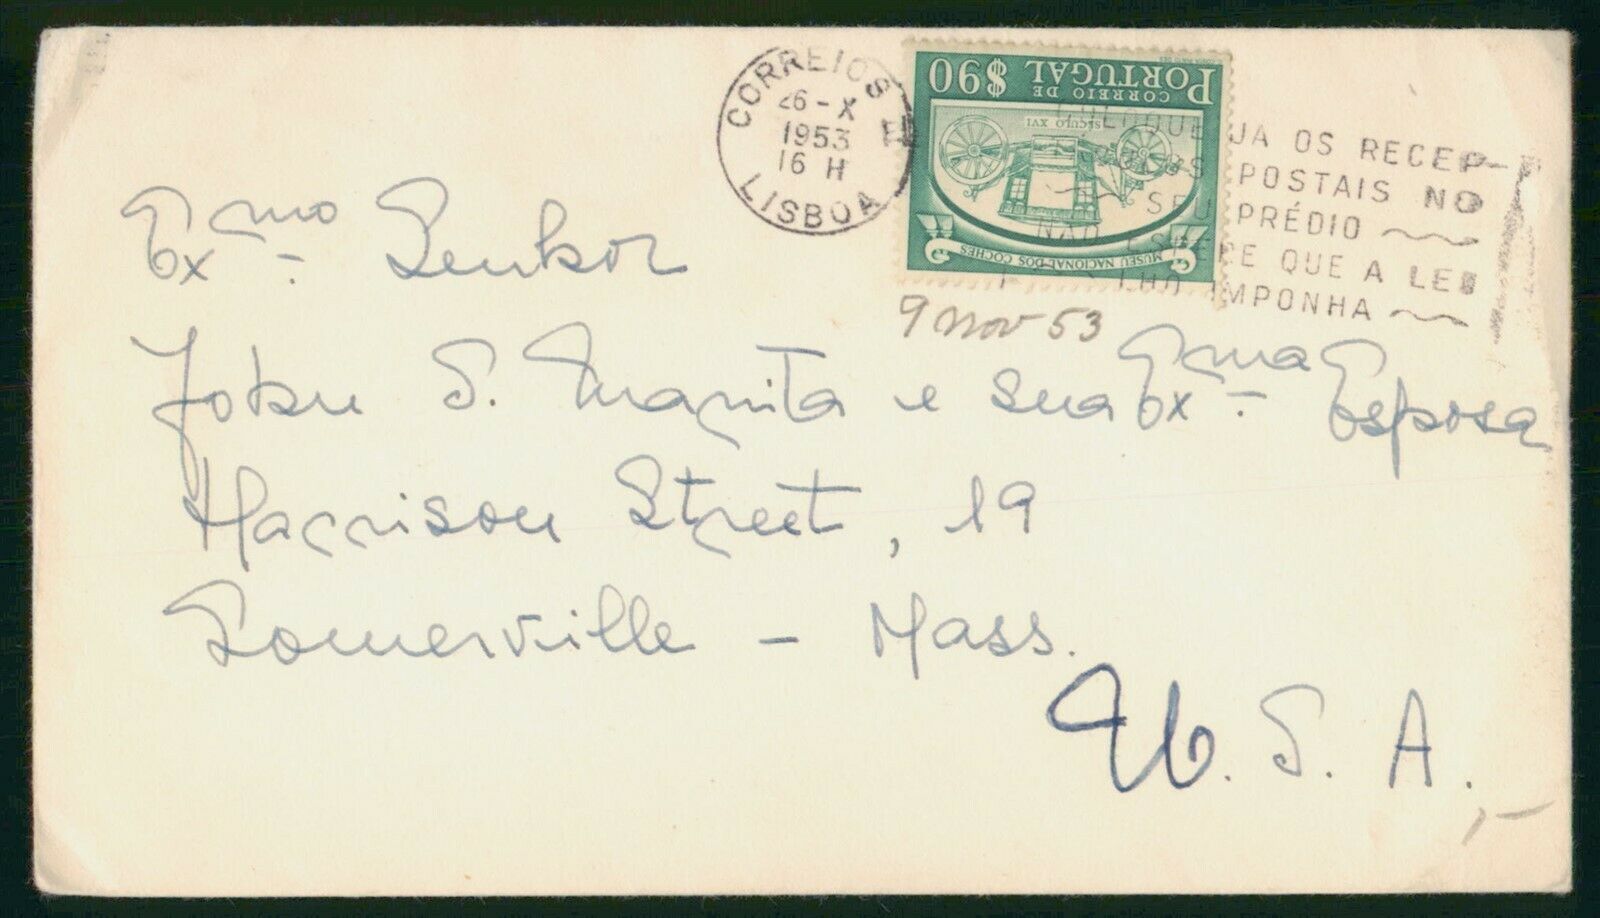 CORREIOS
26-X
1953
16 H
LISBOA
CORREIO DE
PORTUGAL $90
SÉCULO XVI
MUSEU NACIONAL DOS COCHES
COLOQUE JA OS RECEP-
POSTAIS NO
SEU PRÉDIO
NÃO ESPERE QUE A LEI
LHO IMPONHA
9 Nov 53
Exmo Senhor
John S. Manita e sua Exma Esposa
Harrison Street, 19
Somerville - Mass.
U.S.A.